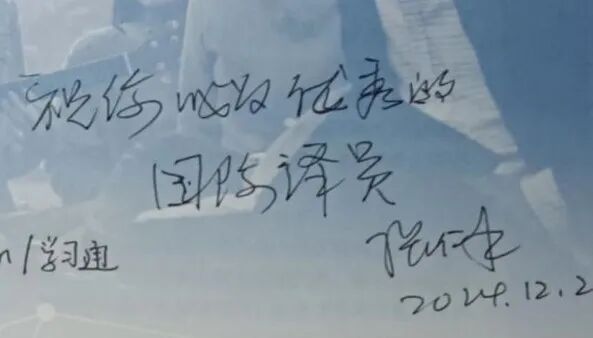 祝你成为优秀的
国际译员
n/学习通
2024.12.2